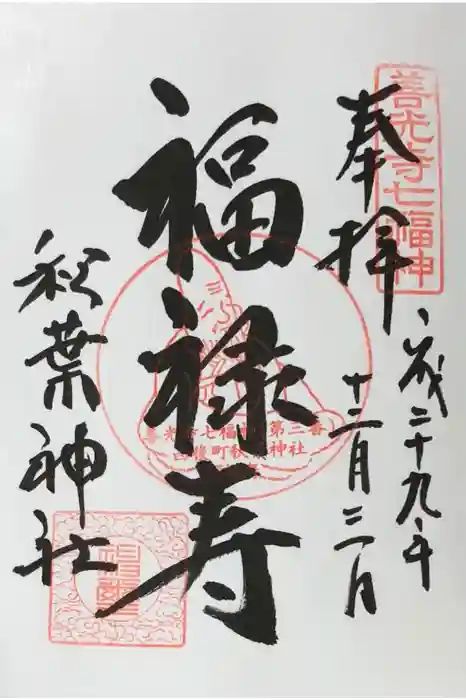 善光寺七福神
奉拝
平成二十九年
十二月三日
福禄寿
善光寺七福神第三番
西後町秋葉神社
秋葉神社